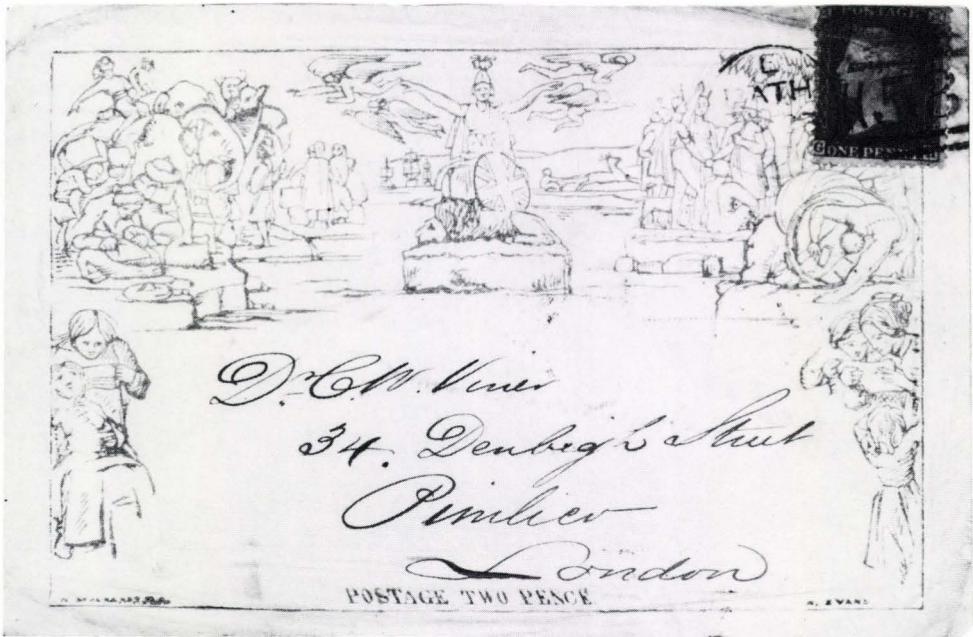 POSTAGE
ATH
ONE PENNY
Dr. C. W. Viner
34. Denbigh Street
Pimlico
London
POSTAGE TWO PENCE